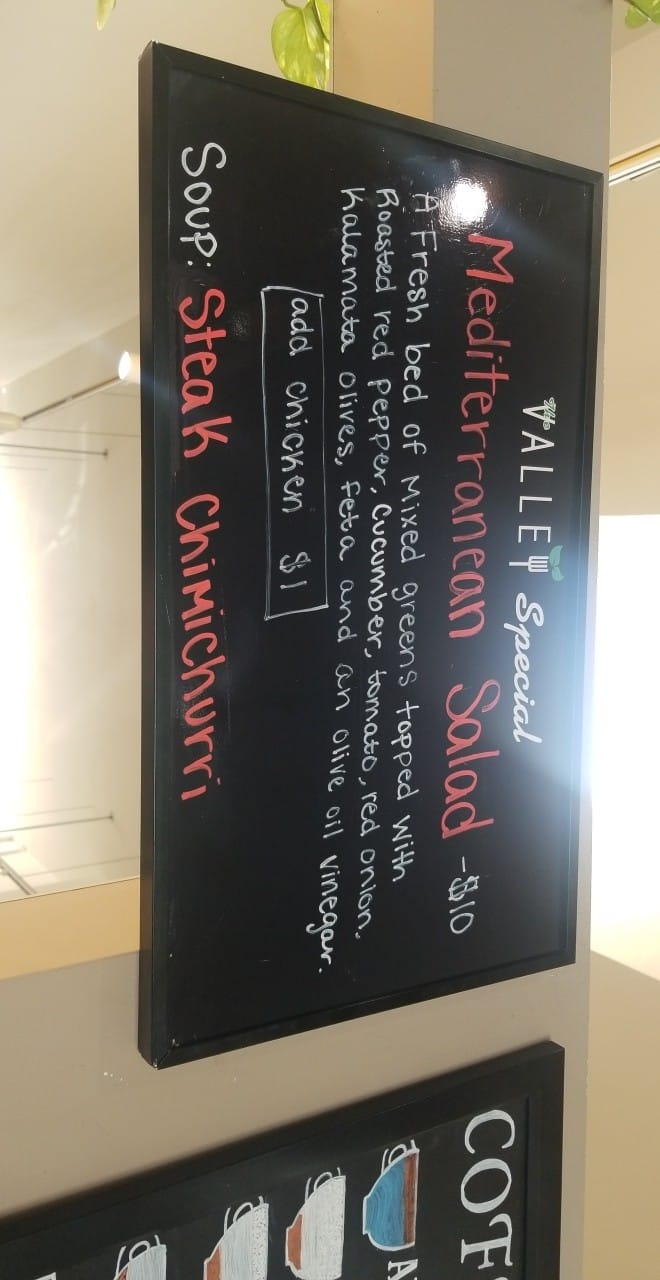 The VALLEY Special
Mediterranean Salad -$10
A Fresh bed of Mixed greens topped with
Roasted red pepper, cucumber, tomato, red onion,
Kalamata olives, feta and an olive oil vinegar.
add chicken $1
Soup: Steak Chimichurri
COF